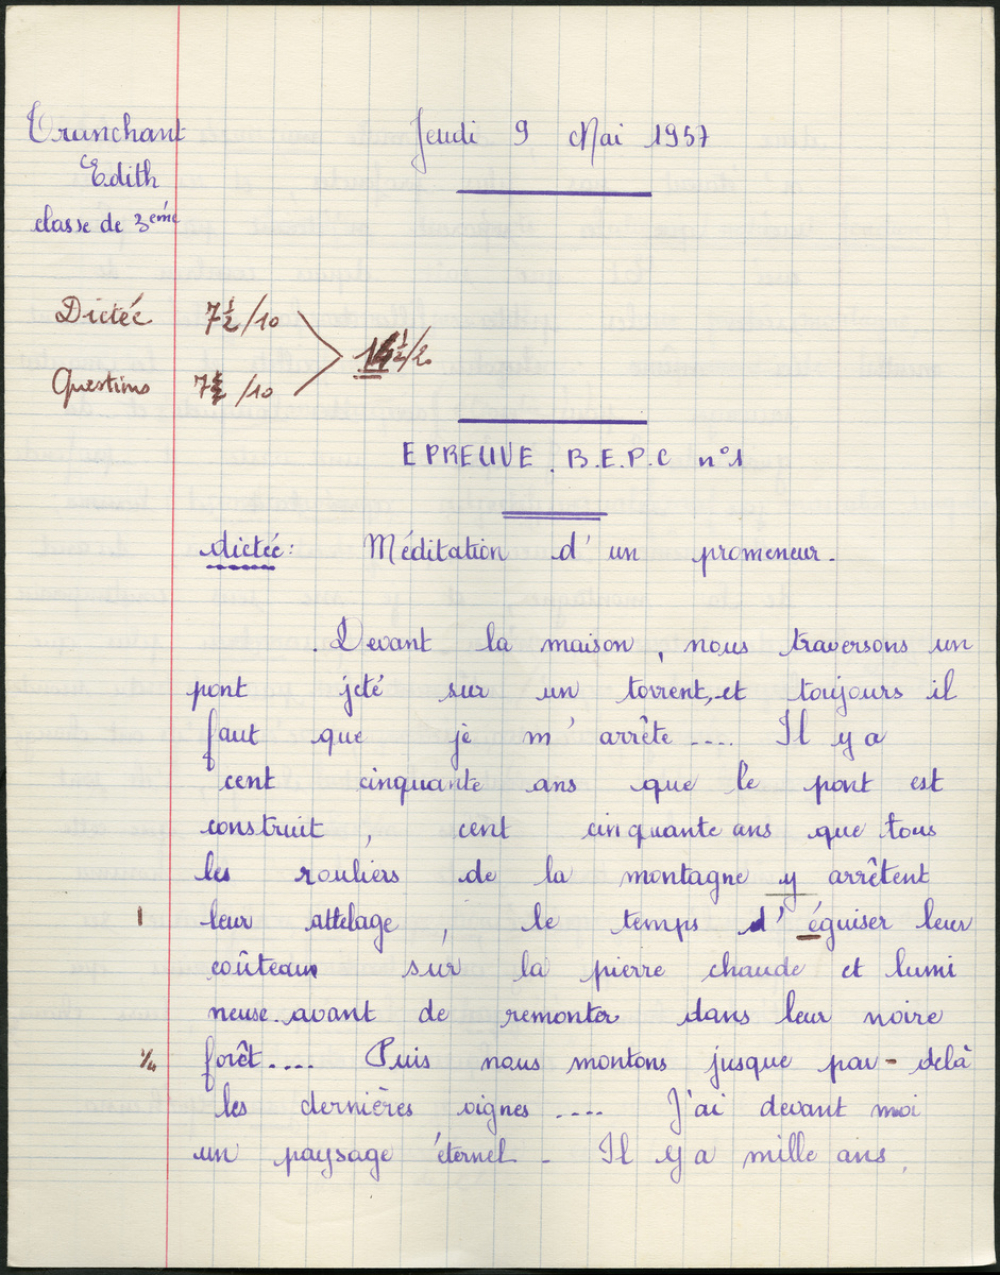 Tranchant
Edith
classe de 3ème
Jeudi 9 Mai 1957
Dictée 7½/10
Questions /10
EPREUVE . B.E.P.C n°1
dictée : Méditation d' un promeneur .
Devant la maison , nous traversons un
pont jeté sur un torrent, et toujours il
faut que je m' arrête .... Il y a
cent cinquante ans que le pont est
construit , cent cinquante ans que tous
les rouliers de la montagne y arrêtent
1 leur attelage , le temps d' éguiser leur
coûteau sur la pierre chaude et lumi
neuse . avant de remonter dans leur noire
¼ forêt .... Puis nous montons jusque par - delà
les dernières vignes .... J'ai devant moi
un paysage éternel . Il y a mille ans ,